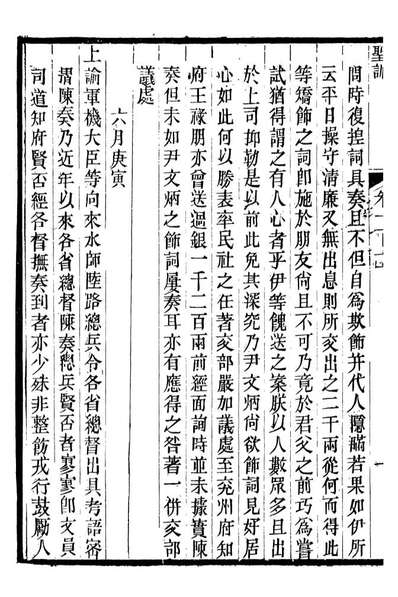 聖訓
卷一百一十
一
問時復揑詞具奏且不但自為欺飾并代人隱瞞若果如伊所
云平日操守清廉又無出息則所交出之二千兩從何而得此
等矯飾之詞即施於朋友尚且不可乃竟於君父之前巧為嘗
試猶得謂之有人心者乎伊等餽送之案朕以人數眾多且出
於上司抑勒是以前此免其深究乃尹文炳尚欲飾詞見好居
心如此何以勝表率民社之任著交部嚴加議處至兖州府知
府王祿朋亦曾送過銀一千二百兩前經面詢時並未據實陳
奏但未如尹文炳之飾詞屢奏耳亦有應得之咎著一併交部
議處
六月庚寅
上諭軍機大臣等向來水師陸路總兵令各省總督出具考語密
摺陳奏乃近年以來各省總督陳奏總兵賢否者寥寥即文員
司道知府賢否經各督撫奏到者亦少殊非整飭戎行鼓勵人